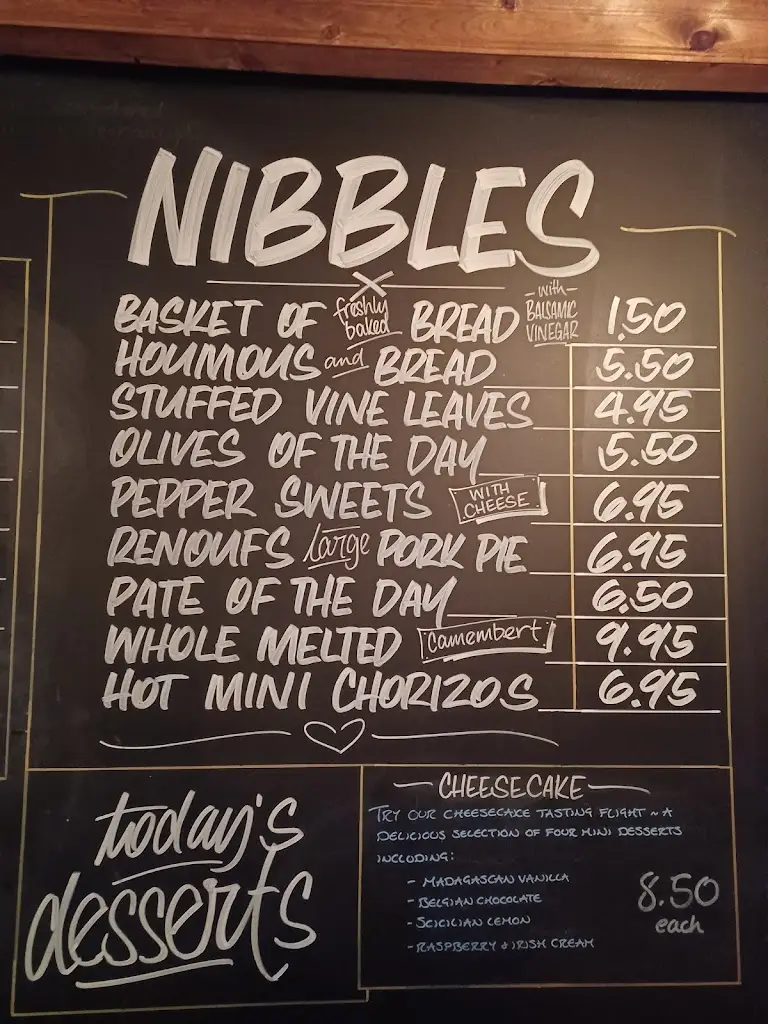 NIBBLES
BASKET OF freshly baked BREAD with BALSAMIC VINEGAR 1.50
HOUMOUS and BREAD 5.50
STUFFED VINE LEAVES 4.95
OLIVES OF THE DAY 5.50
PEPPER SWEETS WITH CHEESE 6.95
RENOUFS large PORK PIE 6.95
PATE OF THE DAY 6.50
WHOLE MELTED Camembert 9.95
HOT MINI CHORIZOS 6.95
today's
desserts
CHEESECAKE
TRY OUR CHEESECAKE TASTING FLIGHT ~ A
DELICIOUS SELECTION OF FOUR MINI DESSERTS
INCLUDING:
- MADAGASCAN VANILLA
- BELGIAN CHOCOLATE
- SCICILIAN LEMON
- RASPBERRY & IRISH CREAM
8.50
each